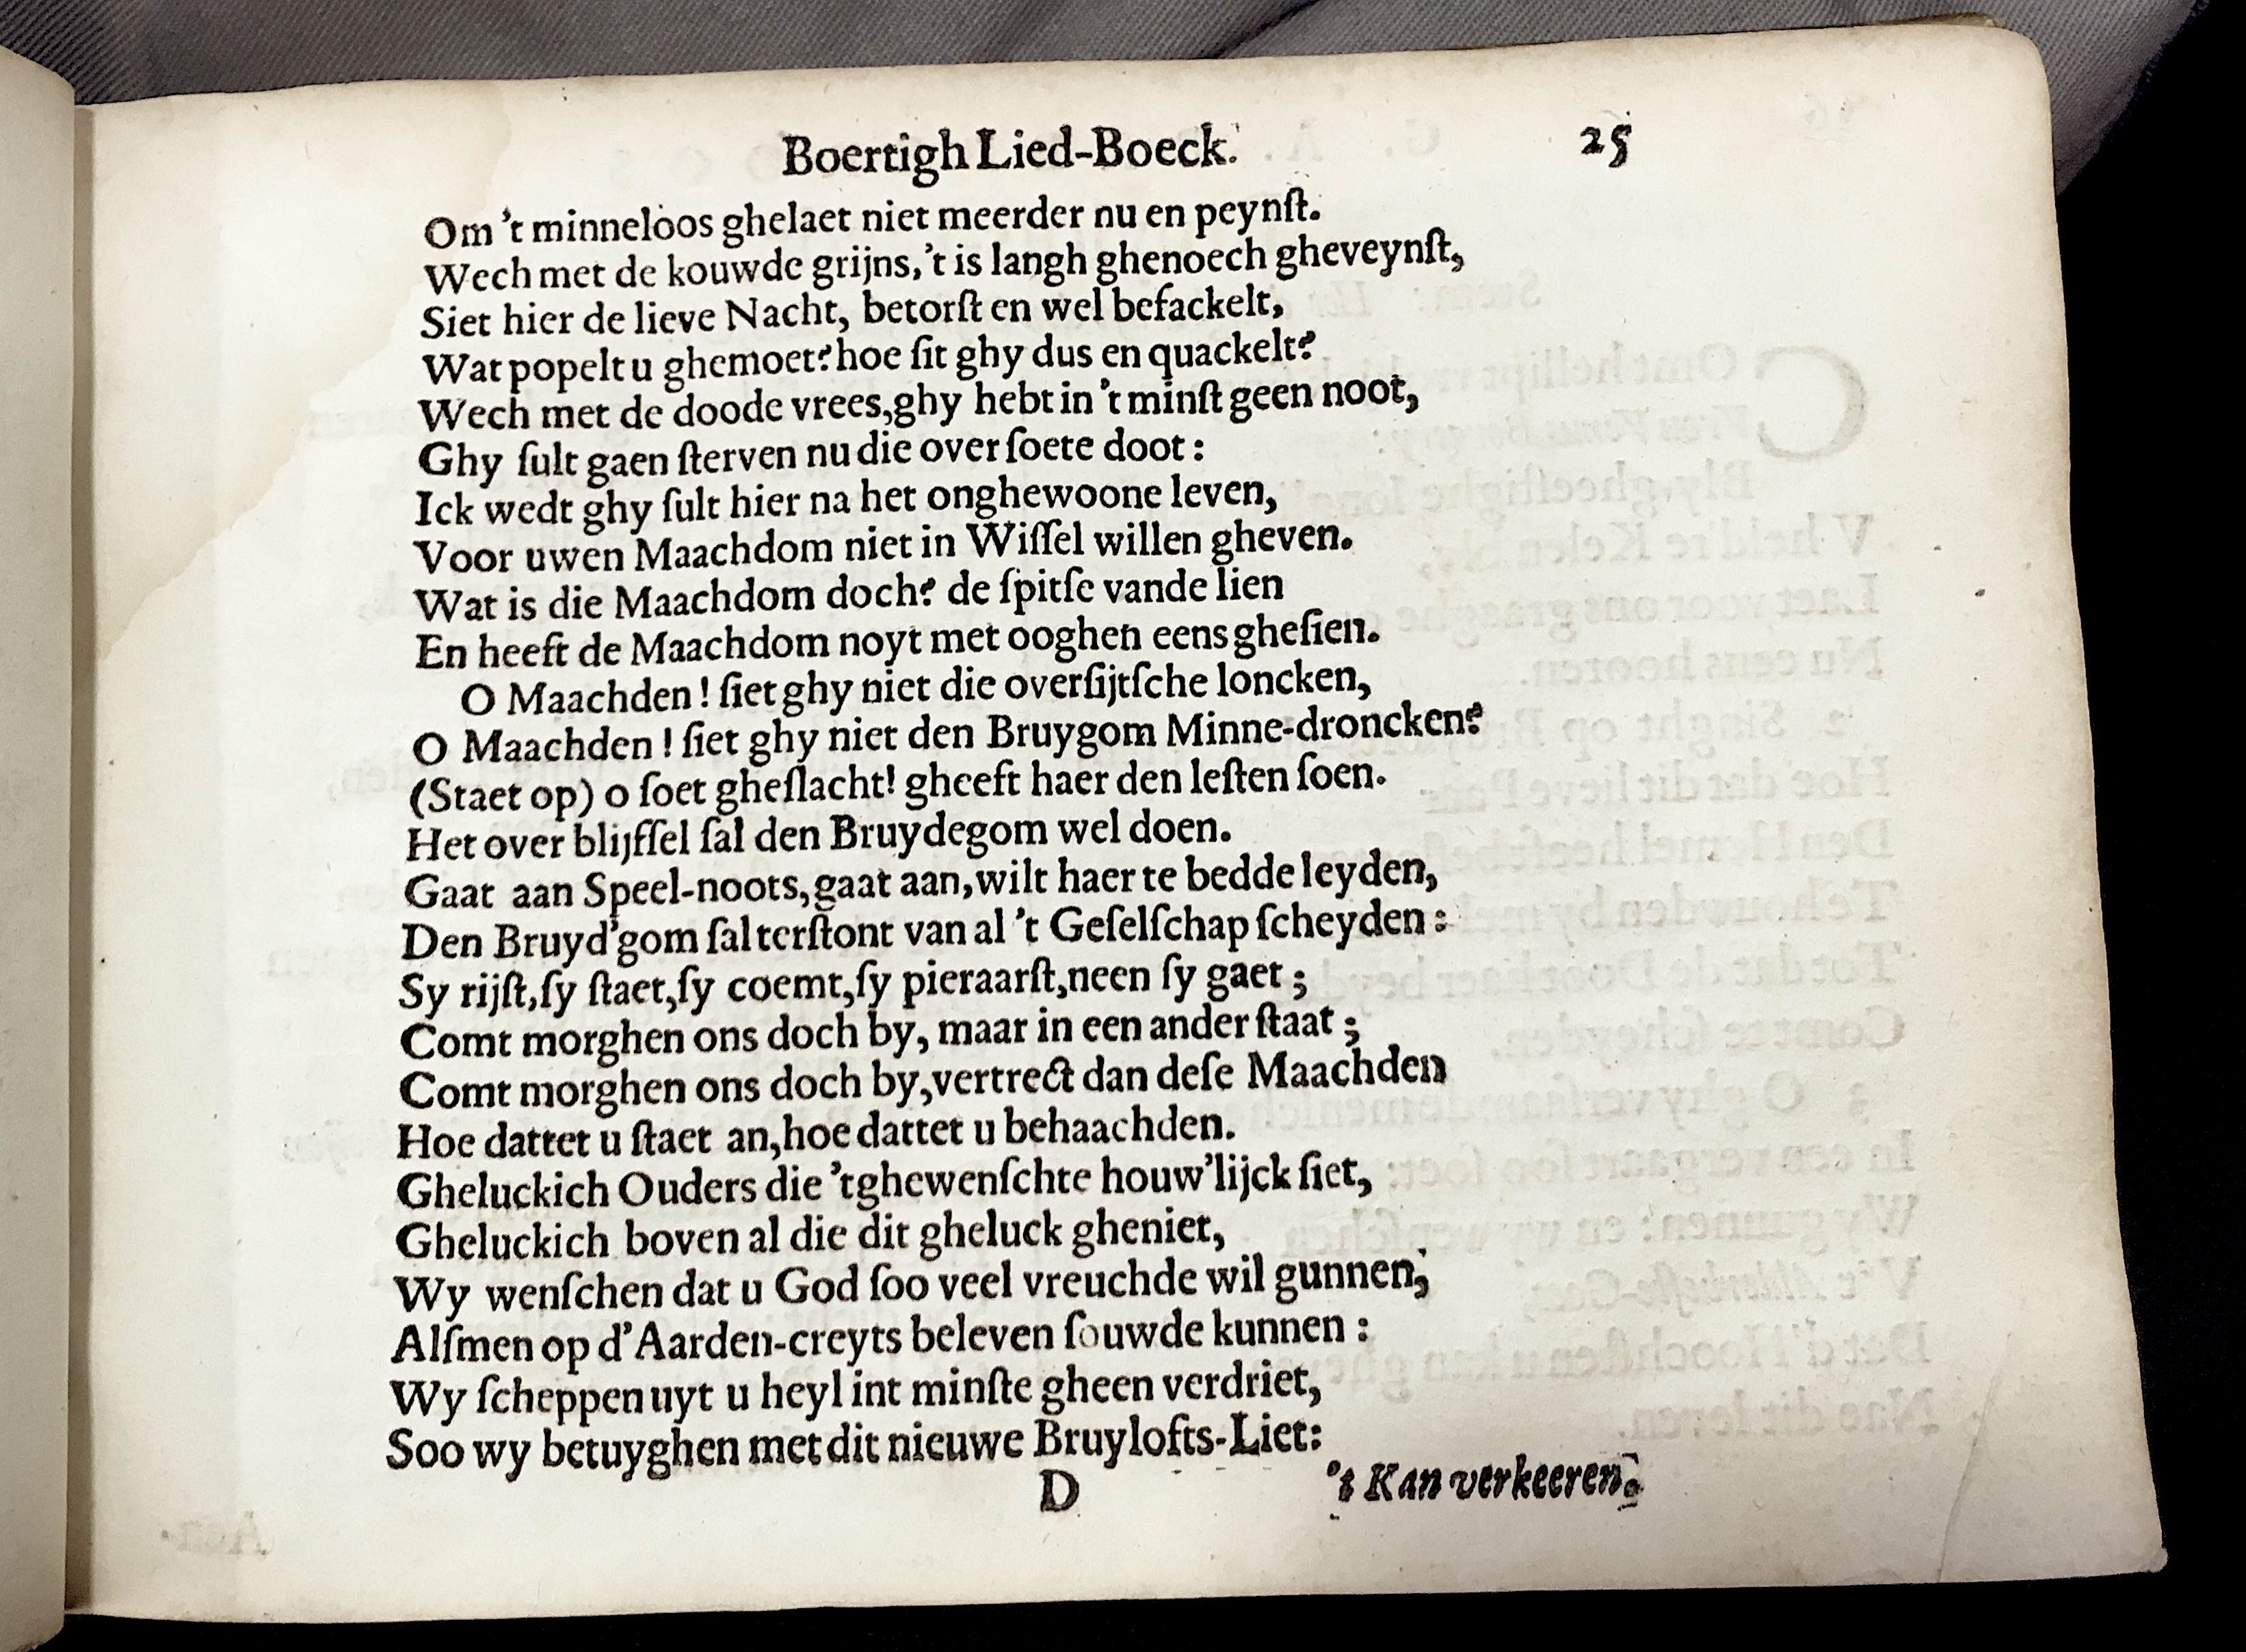 Boertigh Lied-Boeck. 25
Om 't minneloos ghelaet niet meerder nu en peynſt.
Wech met de kouwde grijns, 't is langh ghenoech gheveynſt,
Siet hier de lieve Nacht, betorſt en wel befackelt,
Wat popelt u ghemoet? hoe ſit ghy dus en quackelt?
Wech met de doode vrees, ghy hebt in 't minſt geen noot,
Ghy ſult gaen ſterven nu die over ſoete doot:
Ick wedt ghy ſult hier na het onghewoone leven,
Voor uwen Maachdom niet in Wiſſel willen gheven.
Wat is die Maachdom doch? de ſpitſe vande lien
En heeft de Maachdom noyt met ooghen eens gheſien.
O Maachden! ſiet ghy niet die overſijtſche loncken,
O Maachden! ſiet ghy niet den Bruygom Minne-droncken?
(Staet op) o ſoet gheſlacht! gheeft haer den leſten ſoen.
Het over blijfſel ſal den Bruydegom wel doen.
Gaat aan Speel-noots, gaat aan, wilt haer te bedde leyden,
Den Bruyd'gom ſal terſtont van al 't Geſelſchap ſcheyden:
Sy rijſt, ſy ſtaet, ſy coemt, ſy pieraarſt, neen ſy gaet;
Comt morghen ons doch by, maar in een ander ſtaat;
Comt morghen ons doch by, vertrect dan deſe Maachden
Hoe dattet u ſtaet an, hoe dattet u behaachden.
Gheluckich Ouders die 't ghewenſchte houw'lijck ſiet,
Gheluckich boven al die dit gheluck gheniet,
Wy wenſchen dat u God ſoo veel vreuchde wil gunnen,
Alſmen op d'Aarden-creyts beleven ſouwde kunnen:
Wy ſcheppen uyt u heyl int minſte gheen verdriet,
Soo wy betuyghen met dit nieuwe Bruylofts-Liet:
D 't Kan verkeeren.